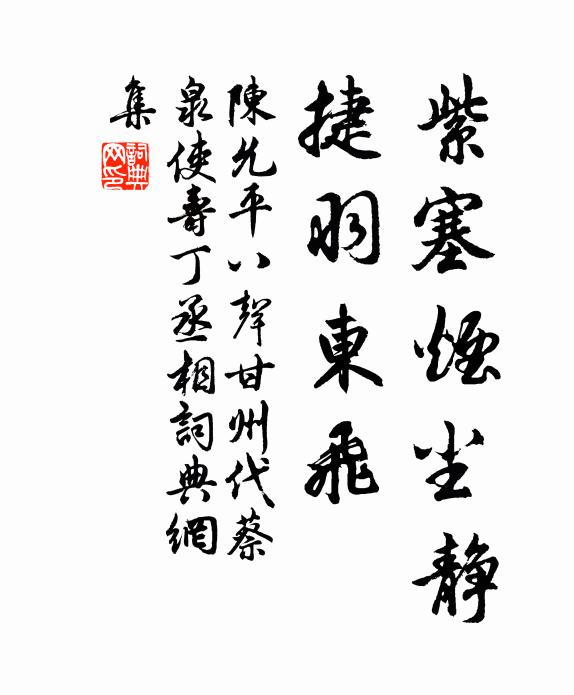 紫塞煙尘静
捷羽東飛
陳允平八聲甘州代蔡
泉使壽丁丞相詞典網
集
詞典网印